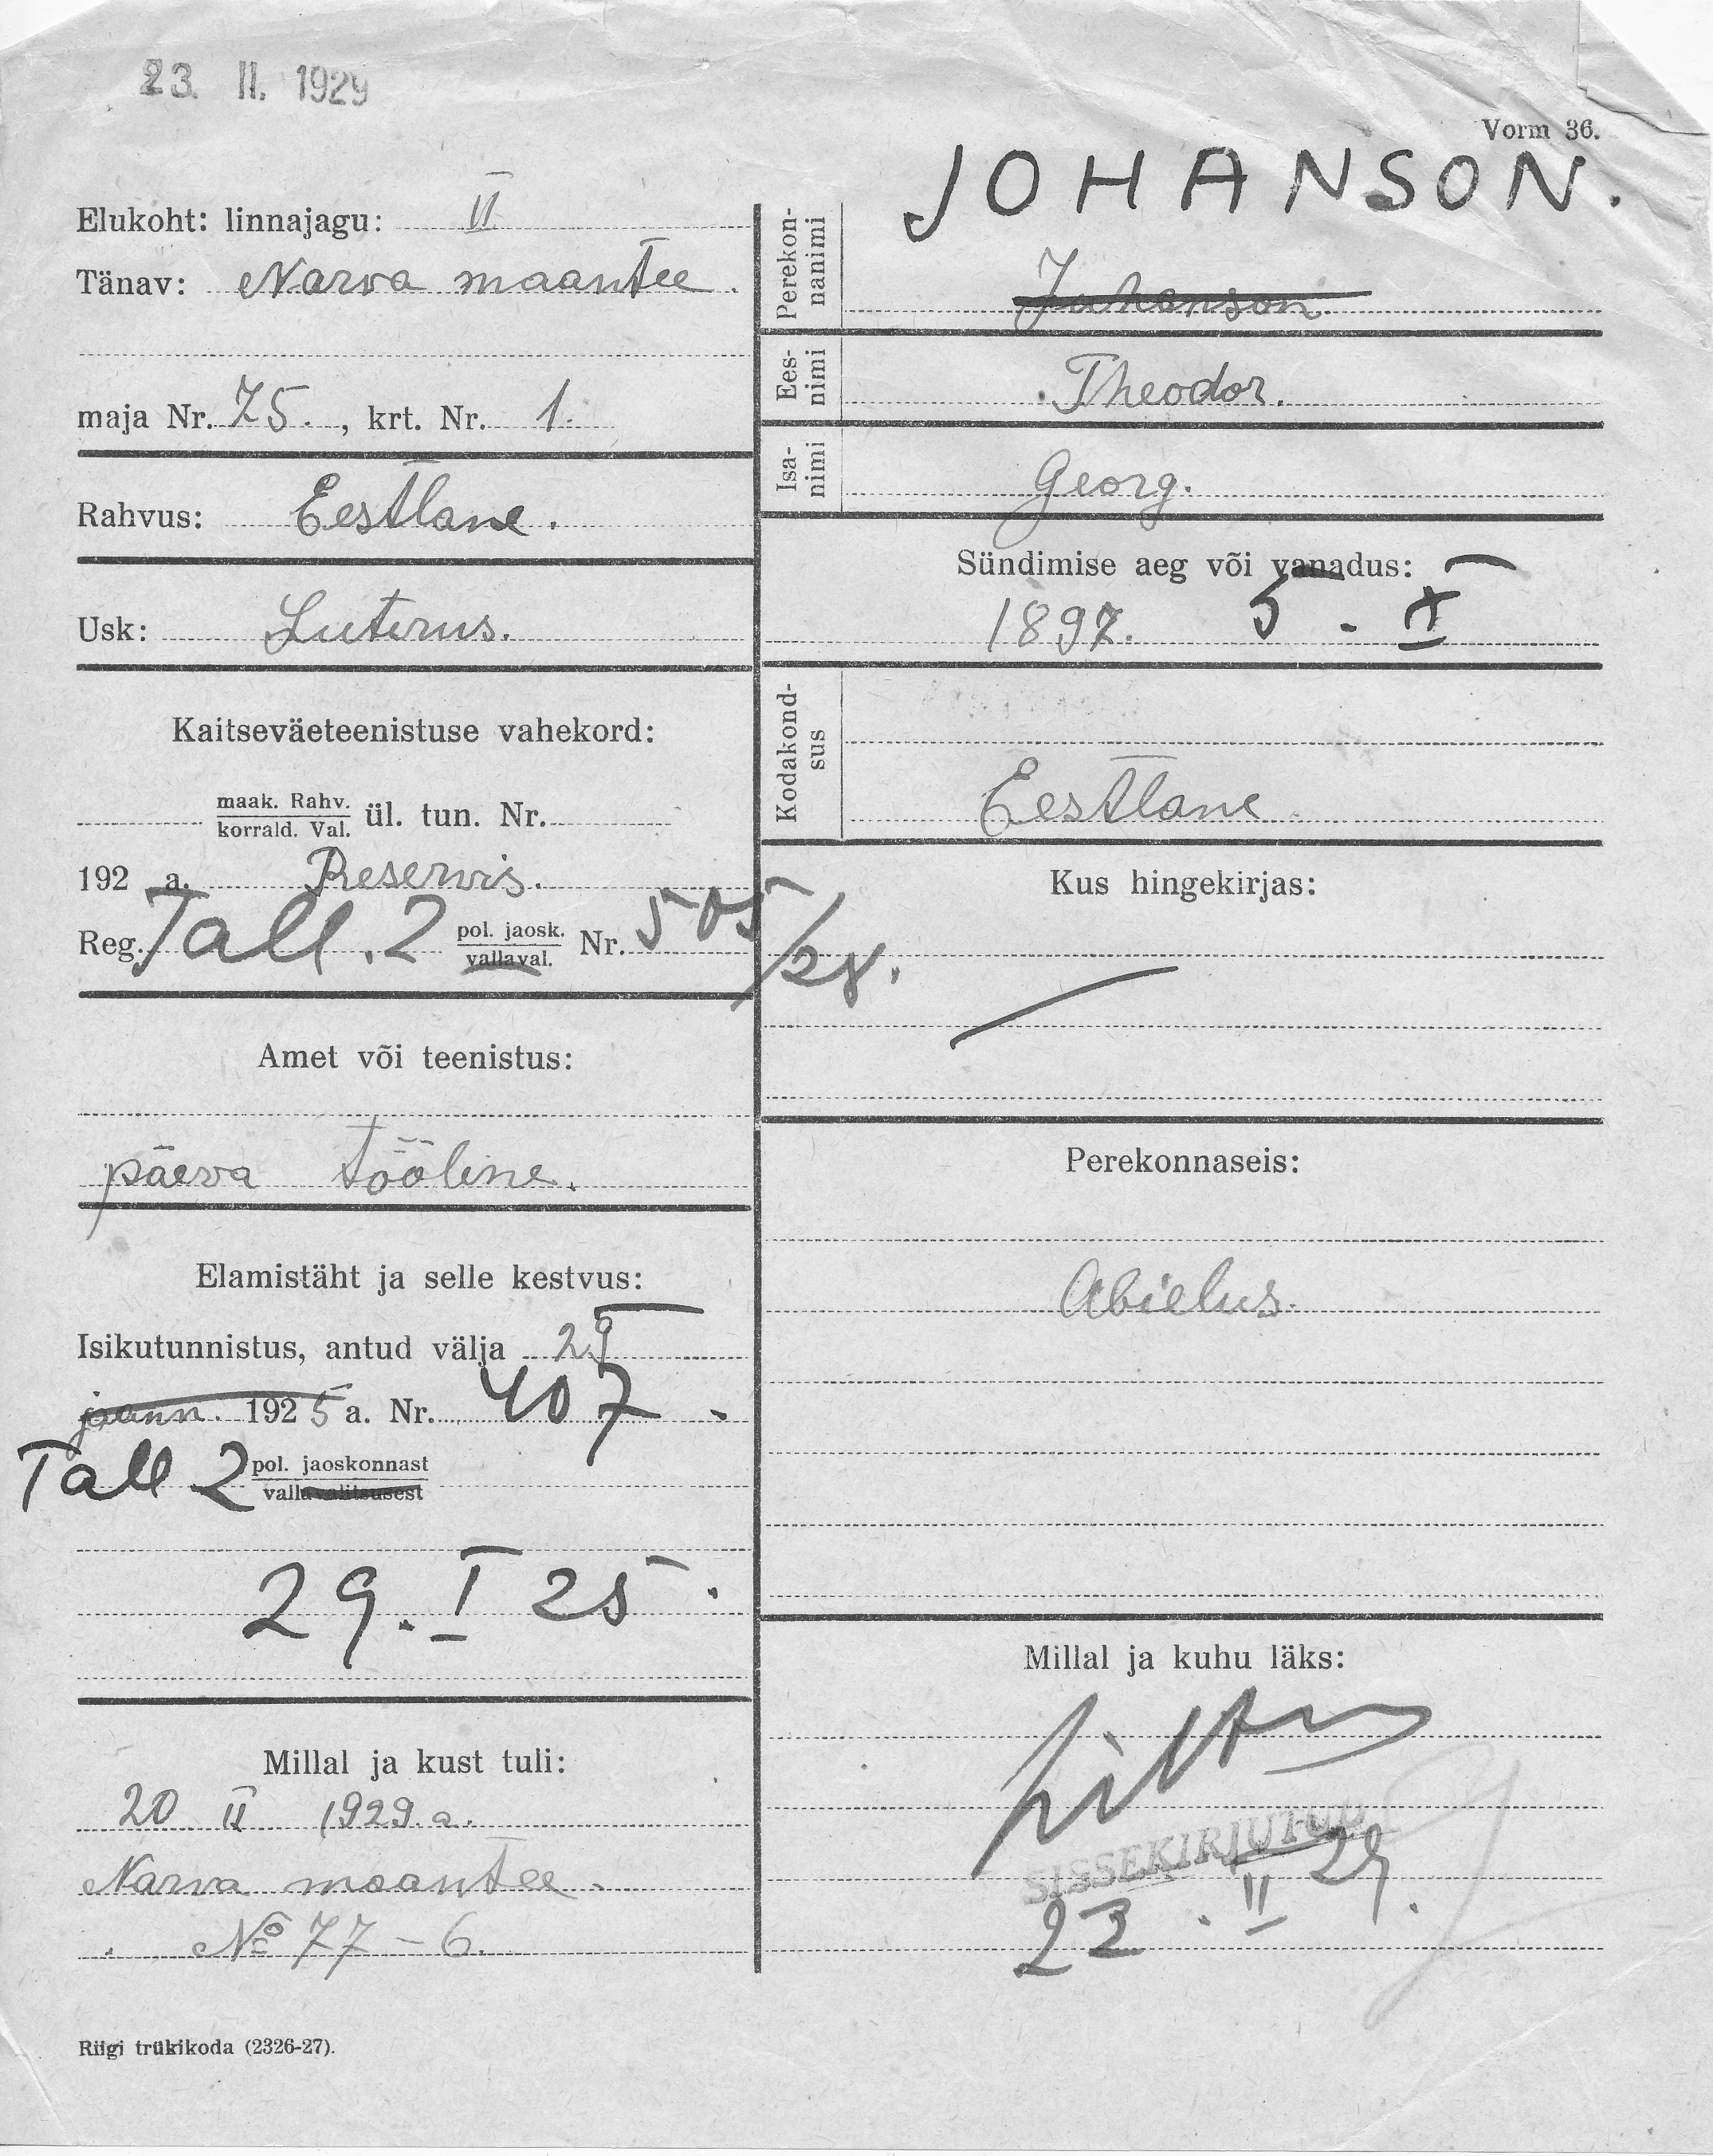 23. II. 1929
Vorm 36.
Elukoht: linnajagu: VI
Tänav: Narva maantee.
maja Nr. 75., krt. Nr. 1.
Rahvus: Eestlane.
Usk: Luterus.
Kaitseväeteenistuse vahekord:
maak. Rahv.
korrald. Val. ül. tun. Nr.
192 a. Reservis.
Reg. Tall. 2 pol. jaosk. Nr. 505/28.
vallaval.
Amet või teenistus:
päeva tööline.
Elamistäht ja selle kestvus:
Isikutunnistus, antud välja 29
jaann. 1925 a. Nr. 407.
Tall 2 pol. jaoskonnast
vallavalitsusest
29. I 25.
Millal ja kust tuli:
20 II 1929. a.
Narva maantee.
No 77-6.
Riigi trükikoda (2326-27).
JOHANSON.
Perekon-
nanimi
Juhanson
Ees-
nimi
Theodor.
Isa-
nimi
Georg.
Sündimise aeg või vanadus:
1897. 5. X
Kodakond-
sus
Eestlane
Kus hingekirjas:
Perekonnaseis:
Abielus.
Millal ja kuhu läks:
SISSEKIRJUTUD
23. II 29.